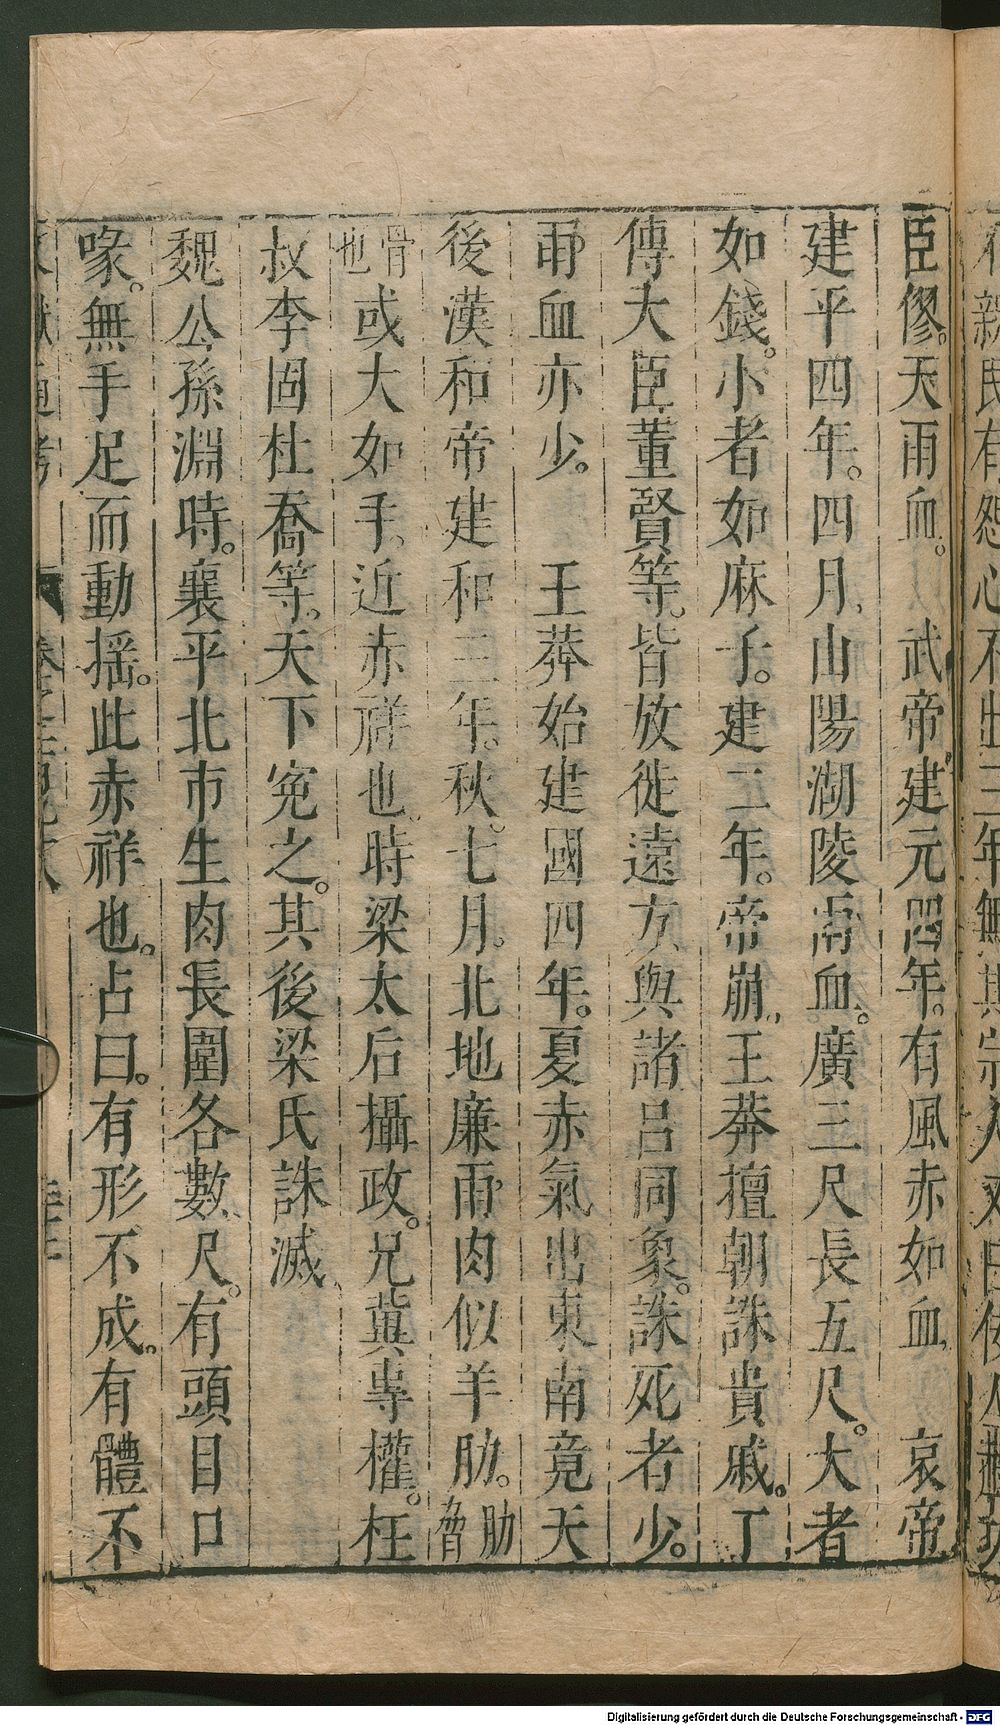 臣僇。天雨血。　武帝建元四年。有風赤如血。　哀帝
建平四年。四月、山陽湖陵雨血。廣三尺長五尺。大者
如錢。小者如麻子。建二年。帝崩、王莽擅朝誅貴戚。丁
傅大臣董賢等。皆放徙遠方、與諸呂同象。誅死者少。
雨血亦少。　王莽始建國四年。夏赤氣出東南竟天
後漢和帝建和三年。秋。七月。北地廉雨肉似羊肋。肋脅
骨也或大如手。近赤祥也。時梁太后攝政。兄冀專權。枉
叔李固杜喬等。天下冤之。其後梁氏誅滅、
魏公孫淵時。襄平北市生肉長圍各數尺。有頭目口
喙。無手足而動搖。此赤祥也。占曰。有形不成。有體不
Digitalisierung gefördert durch die Deutsche Forschungsgemeinschaft - DFG